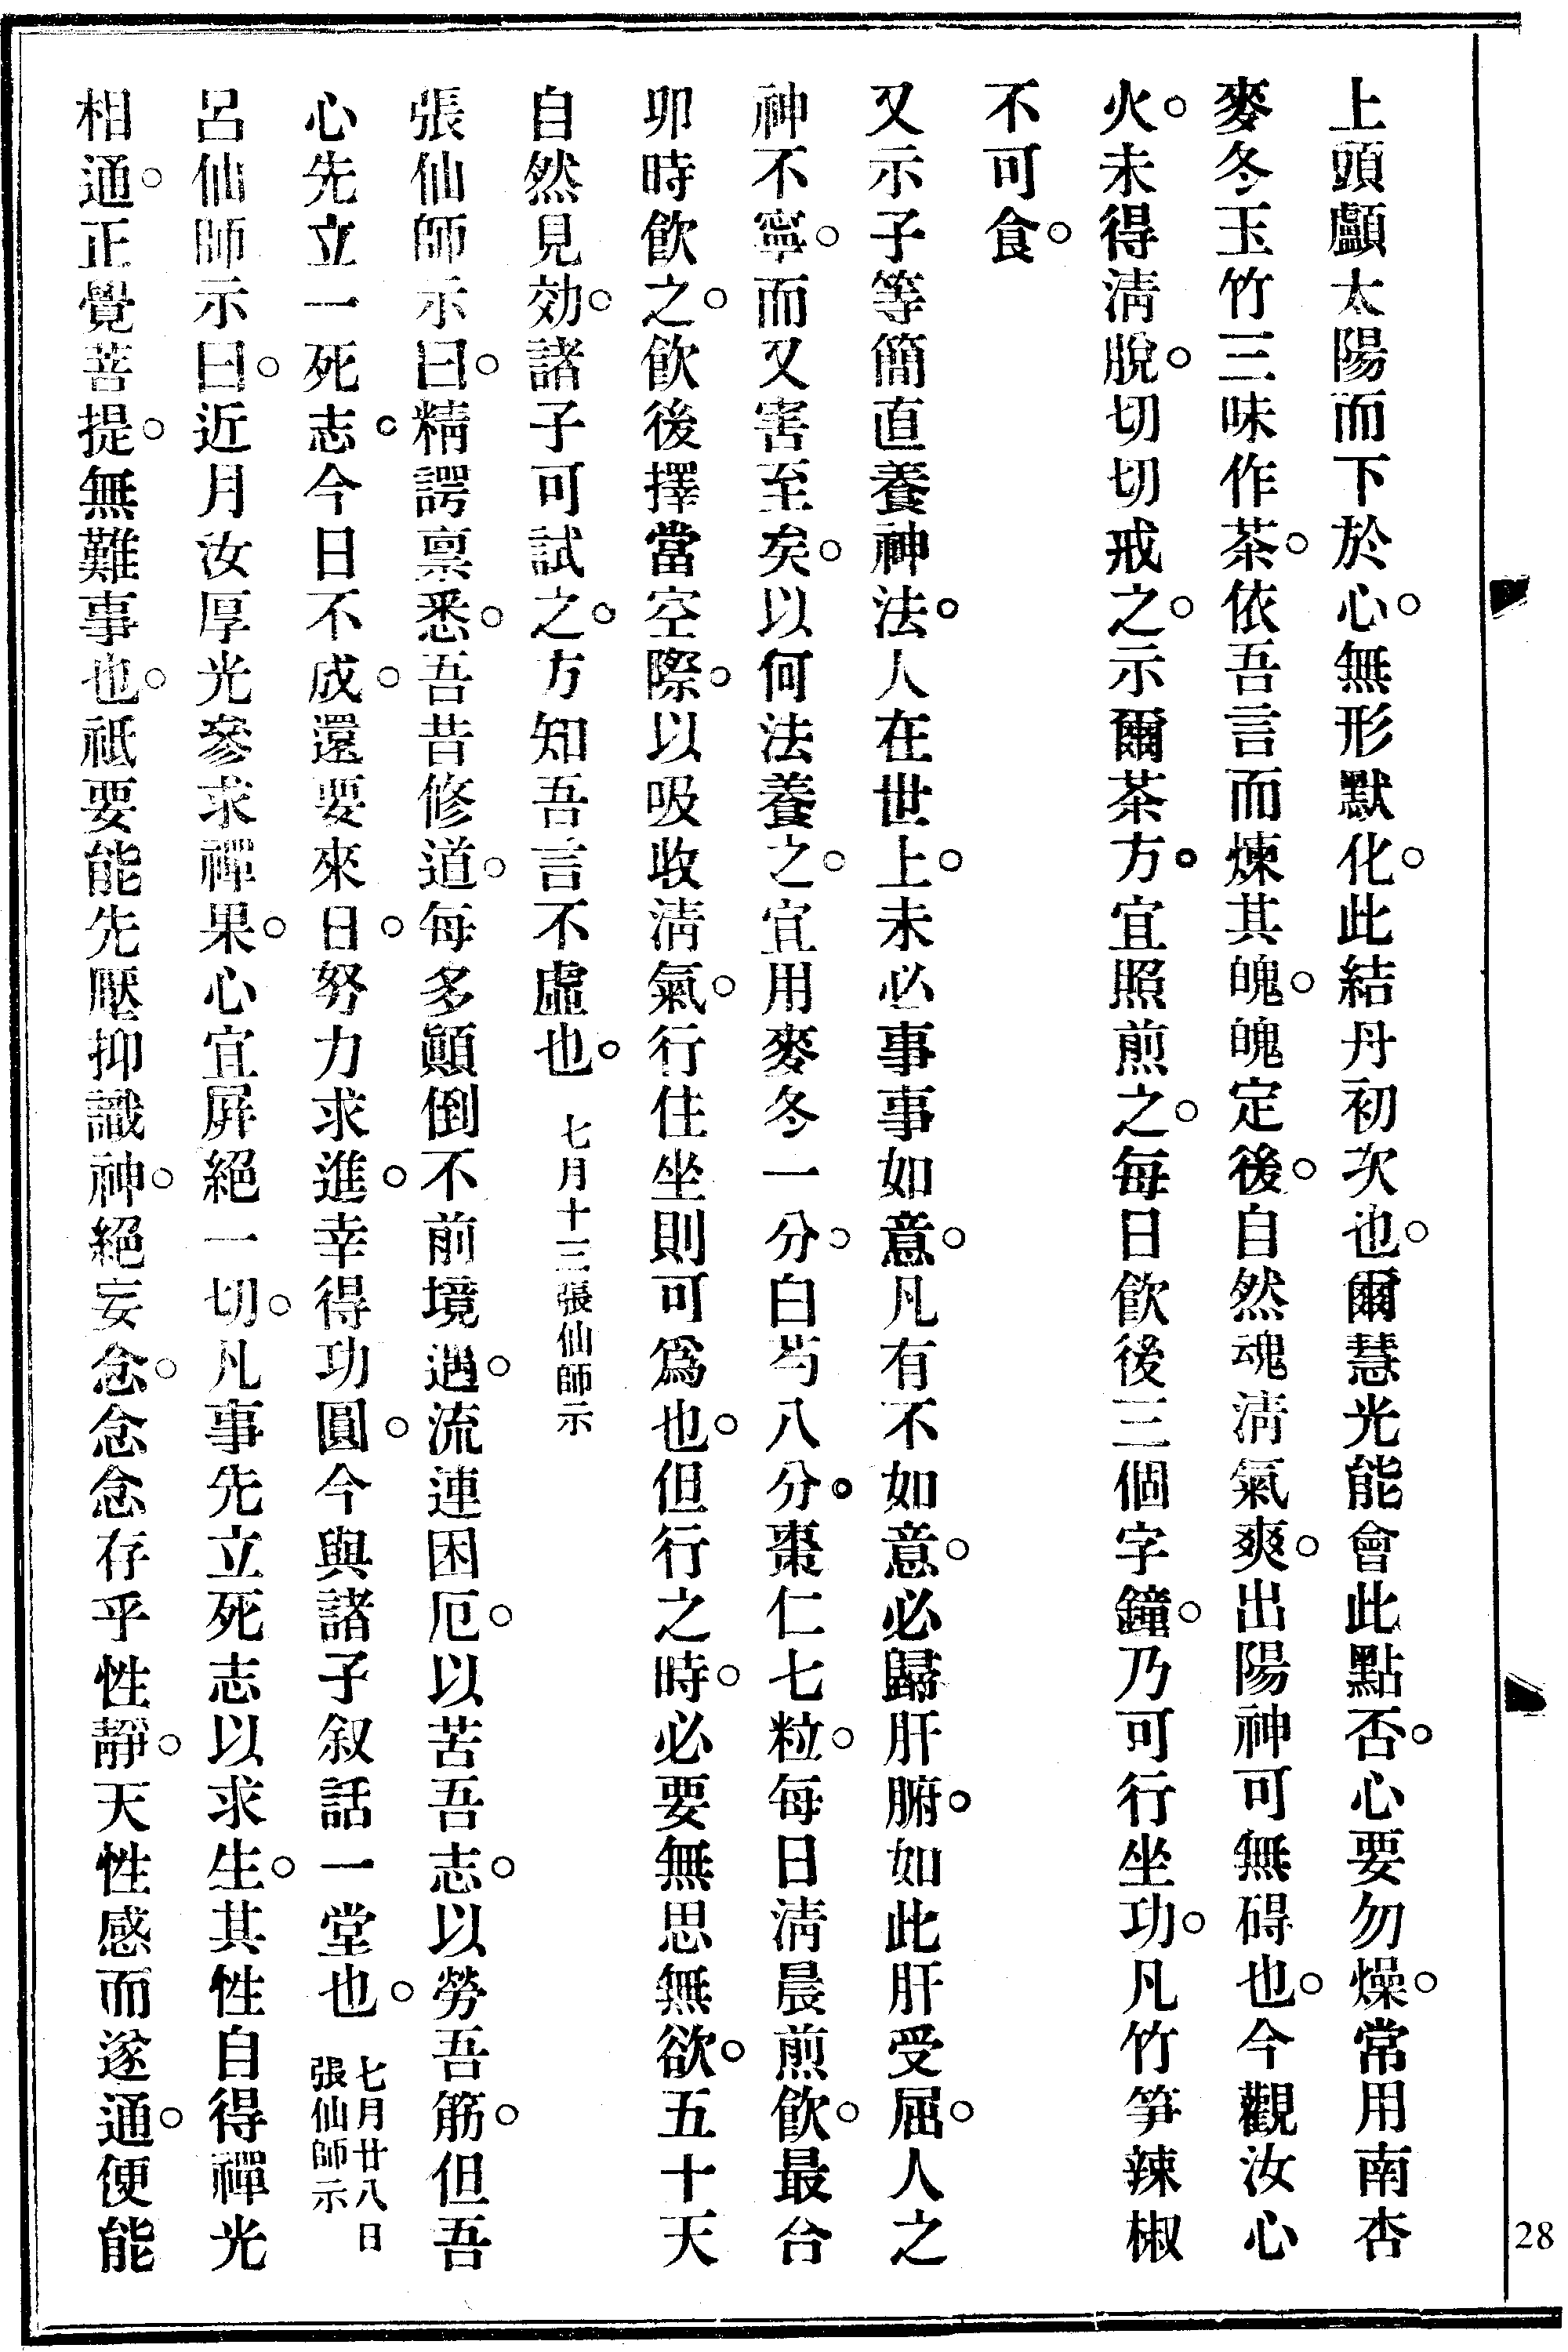 上頭顱太陽而下於心。無形默化。此結丹初次也。爾慧光能會此點否。心要勿燥。常用南杏
麥冬玉竹三味作茶。依吾言而煉其魄。魄定後。自然魂淸氣爽。出陽神可無碍也。今觀汝心
火。未得淸脫。切切戒之。示爾茶方。宜照煎之。每日飮後三個字鐘。乃可行坐功。凡竹笋辣椒
不可食。
又示子等簡直養神法。人在世上。未必事事如意。凡有不如意。必歸肝腑。如此肝受屈。人之
神不寧。而又害至矣。以何法養之。宜用麥冬一分。白芍八分。棗仁七粒。每日淸晨煎飮。最合
卯時飮之。飮後擇當空際。以吸收淸氣。行住坐則可爲也。但行之時。必要無思無欲。五十天
自然見効。諸子可試之。方知吾言不虛也。 七月十三張仙師示
張仙師示曰。精諤禀悉。吾昔修道。每多顚倒不前境遇。流連困厄。以苦吾志。以勞吾筋。但吾
心先立一死志。今日不成。還要來日。努力求進。幸得功圓。今與諸子叙話一堂也。 七月廿八日
張仙師示
呂仙師示曰。近月汝厚光參求禪果。心宜屛絕一切。凡事先立死志以求生。其性自得禪光
相通。正覺菩提。無難事也。祗要能先壓抑識神。絕妄念。念念存乎性靜。天性感而遂通。便能
28